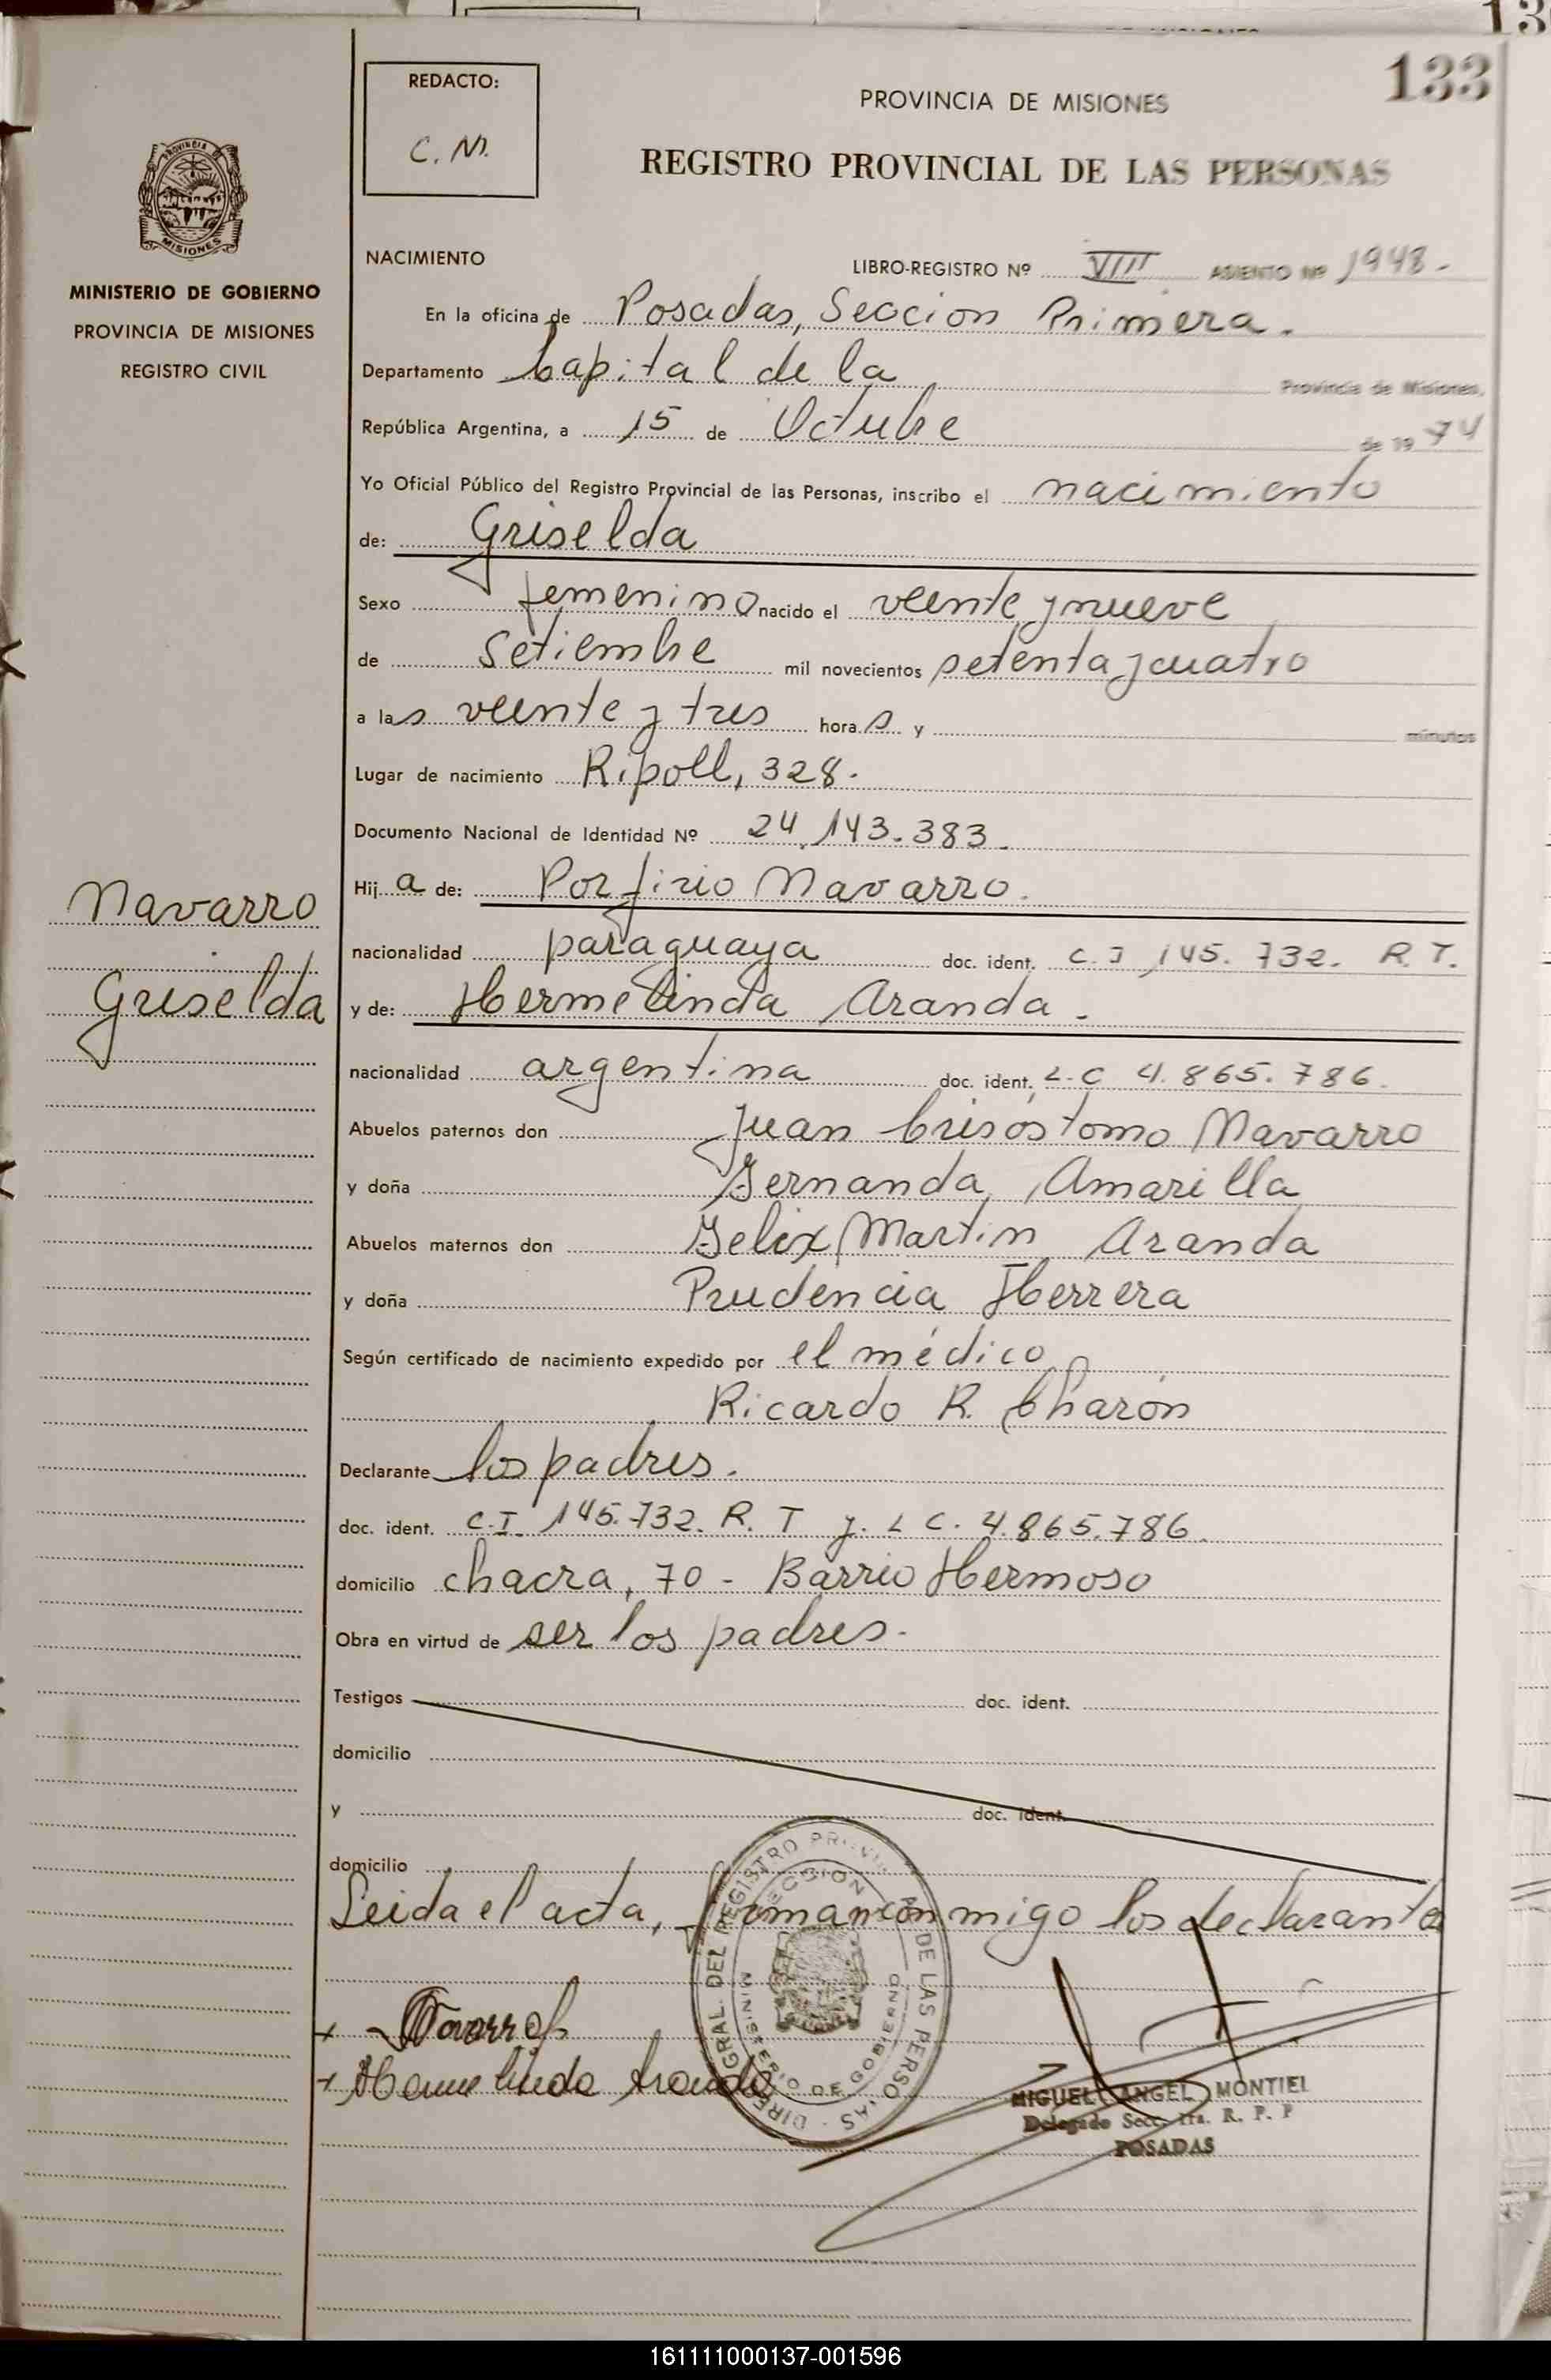 133
REDACTO:
C. N.
PROVINCIA DE MISIONES
REGISTRO PROVINCIAL DE LAS PERSONAS
PROVINCIA DE
MISIONES
MINISTERIO DE GOBIERNO
PROVINCIA DE MISIONES
REGISTRO CIVIL
NACIMIENTO LIBRO-REGISTRO Nº VIII ASIENTO Nº 1948.-
En la oficina de Posadas, Seccion Primera.
Departamento Capital de la Provincia de Misiones,
República Argentina, a 15 de Octubre de 1974
Yo Oficial Público del Registro Provincial de las Personas, inscribo el nacimiento
de: Griselda
Sexo femenino nacido el veinte y nueve
de Setiembre mil novecientos setenta y cuatro
a las veinte y tres horas y minutos
Lugar de nacimiento Ripoll, 328.
Documento Nacional de Identidad Nº 24.143.383.
Hija de: Porfirio Navarro.
nacionalidad paraguaya doc. ident. C.I 145.732. R.T.
y de: Hermelinda Aranda.
nacionalidad argentina doc. ident. L.C 4.865.786.
Navarro
Griselda
Abuelos paternos don Juan Crisóstomo Navarro
y doña Fernanda Amarilla
Abuelos maternos don Felix Martin Aranda
y doña Prudencia Herrera
Según certificado de nacimiento expedido por el médico
Ricardo R. Charón
Declarante los padres.
doc. ident. C.I. 145.732. R.T y. L C. 4.865.786.
domicilio chacra, 70 - Barrio Hermoso
Obra en virtud de ser los padres.
Testigos doc. ident.
domicilio
y doc. ident.
domicilio
Leida el acta, firman conmigo los declarantes
DIREC GRAL. DEL REGISTRO PROVIN DE LAS PERSONAS
MINISTERIO DE GOBIERNO
+ Navarro
+ Hermelinda Aranda
MIGUEL ANGEL MONTIEL
Delegado Secc. 1ra. R. P. P
POSADAS
161111000137-001596